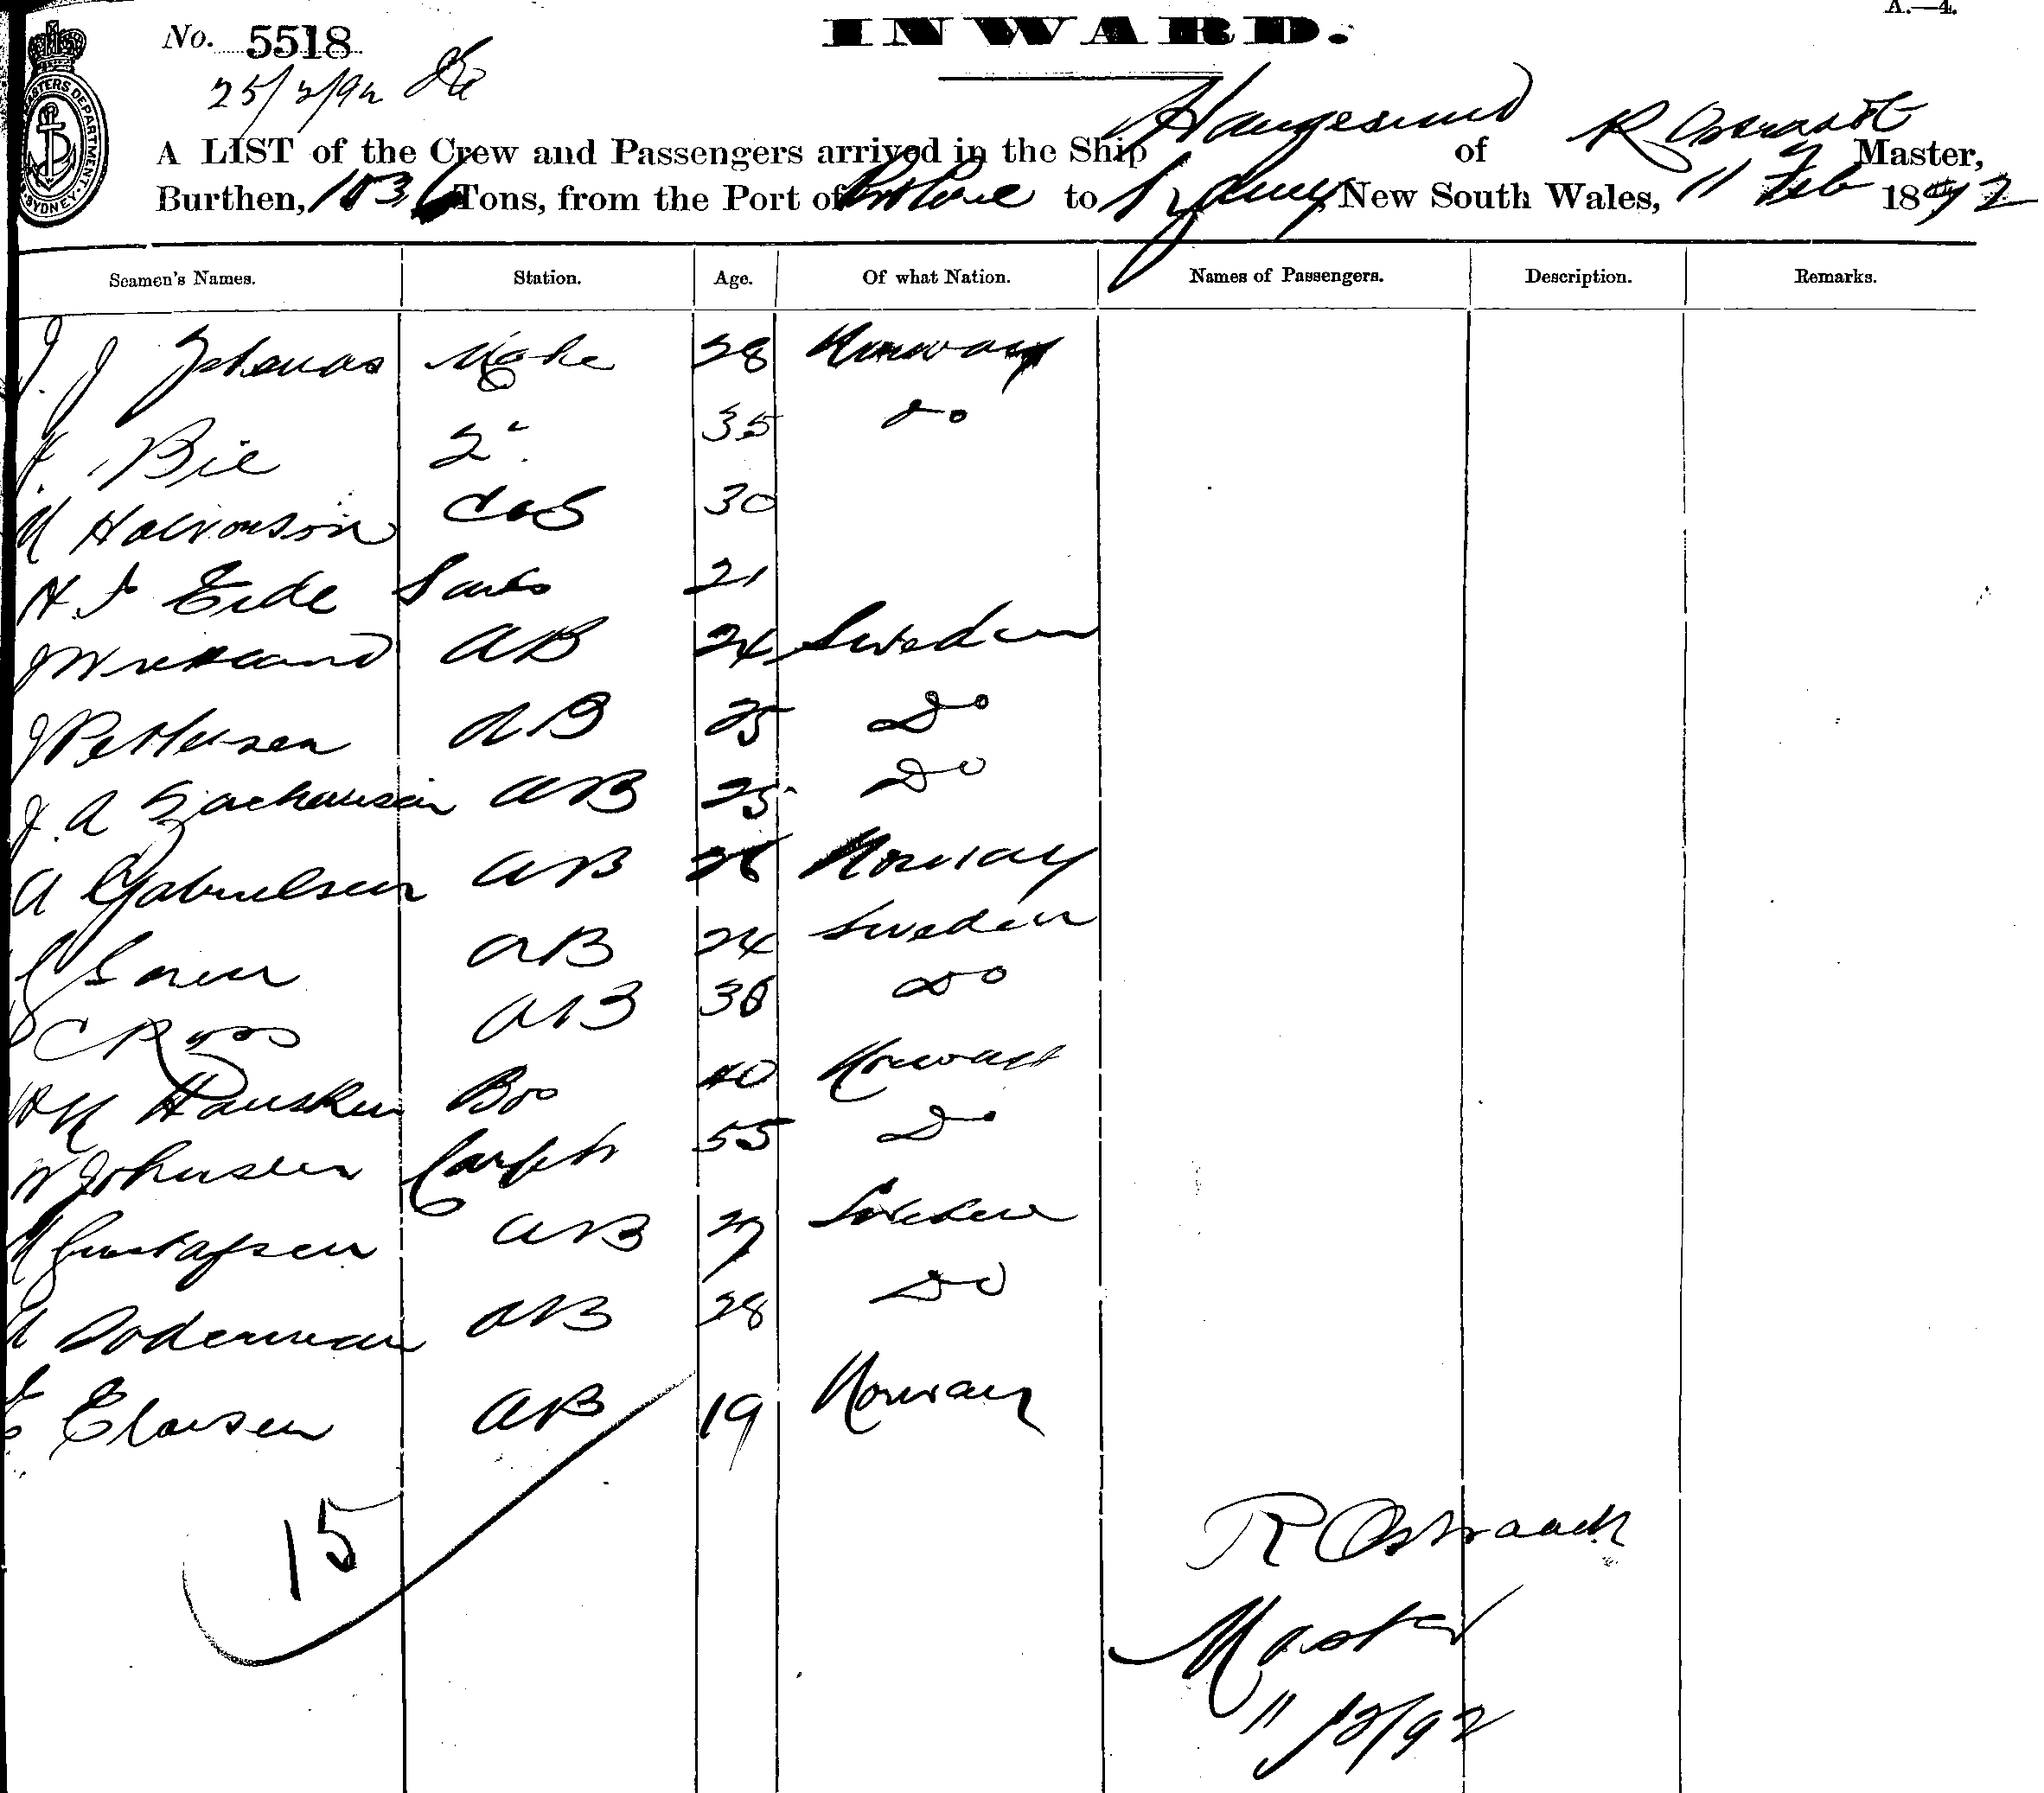 A.—4.
No. 5518
INWARD.
25/2/92
A LIST of the Crew and Passengers arrived in the Ship Haugesund of R Master,
Burthen, 1036 Tons, from the Port of to Sydney New South Wales, 11 Feb 1892
Seamen's Names. Station. Age. Of what Nation. Names of Passengers. Description. Remarks.
J. J Mate 28 Norway
Bie 2" 35 Do
Halvorson C&S 30
H Eide 21
AB 24 Sweden
J Pettersen AB 25 Do
J. A Zachausen AB 25 Do
A Gabrielsen AB Norway
AB 24 Sweden
C Roos AB 38 Do
Hausken Bos 40 Norway
Johnsen Carptr 55 Do
Gustafsen AB 27 Sweden
A Soderman AB 28 Do
E Clausen AB 19 Norway
15
R Ostraadt
Master
11/2/92